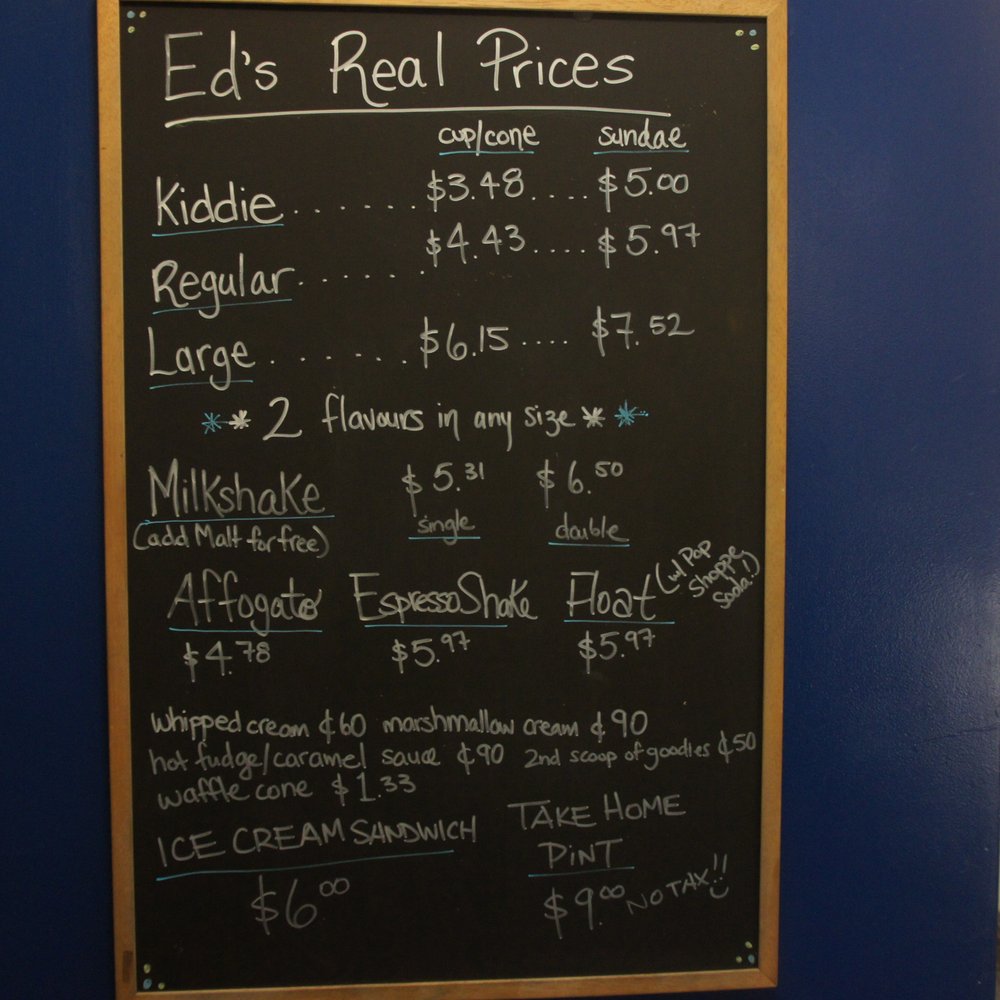 Ed's Real Prices
cup/cone sundae
Kiddie ....... $3.48 .... $5.00
Regular ...... $4.43 .... $5.97
Large ....... $6.15 .... $7.52
** 2 flavours in any size **
Milkshake $5.31 $6.50
(add Malt for free) single double
Affogato Espresso Shake Float (w/ Pop Shoppe Soda!)
$4.78 $5.97 $5.97
whipped cream ¢60 marshmallow cream ¢90
hot fudge/caramel sauce ¢90 2nd scoop of goodies ¢50
waffle cone $1.33
ICE CREAM SANDWICH TAKE HOME
PINT
$6.00 $9.00 NO TAX!!